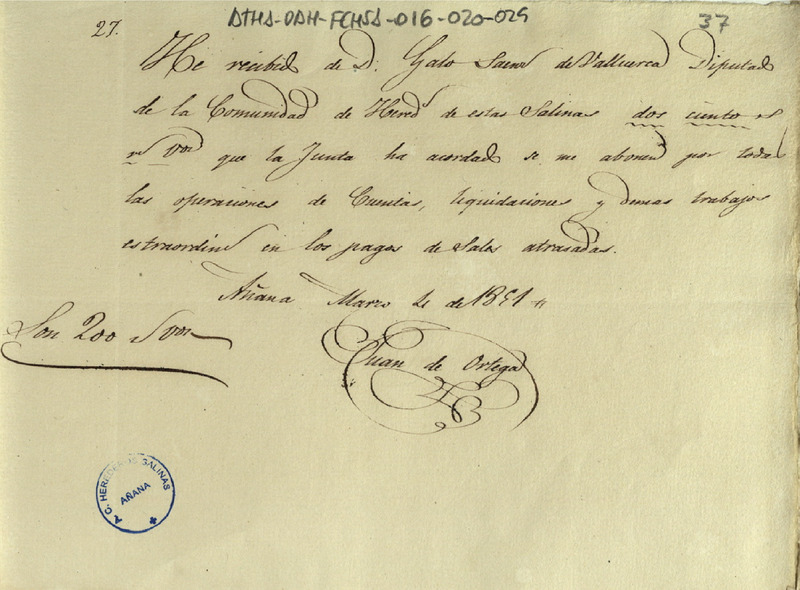 ATHA-DAH-FCHSA-016-020-029
37
27.
He recibido de D. Galo Saenz de Valluerca Diputado
de la Comunidad de Hered.s de estas Salinas dos ciento s
r.s von que la Junta ha acordado se me abonen por todas
las operaciones de Cuentas, liquidaciones y demas trabajos
estraordin.s en los pagos de Sales atrasadas.
Añana Marzo 4 de 1851
Son 200 r.s von
Juan de Ortega
A.C. HEREDEROS SALINAS
AÑANA